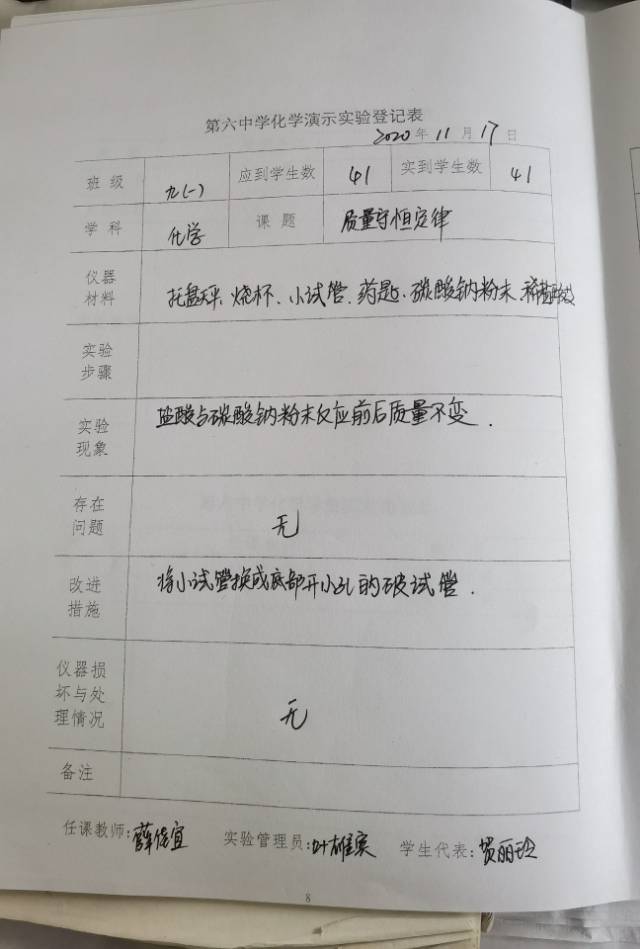 第六中学化学演示实验登记表
2020年11月17日
班级 九(一) 应到学生数 41 实到学生数 41
学科 化学 课题 质量守恒定律
仪器材料 托盘天平、烧杯、小试管、药匙、碳酸钠粉末、稀盐酸
实验步骤
实验现象 盐酸与碳酸钠粉末反应前后质量不变.
存在问题 无
改进措施 将小试管换成底部开小孔的破试管.
仪器损坏与处理情况 无
备注
任课教师: 实验管理员:叶雄实 学生代表:贺丽玲
8